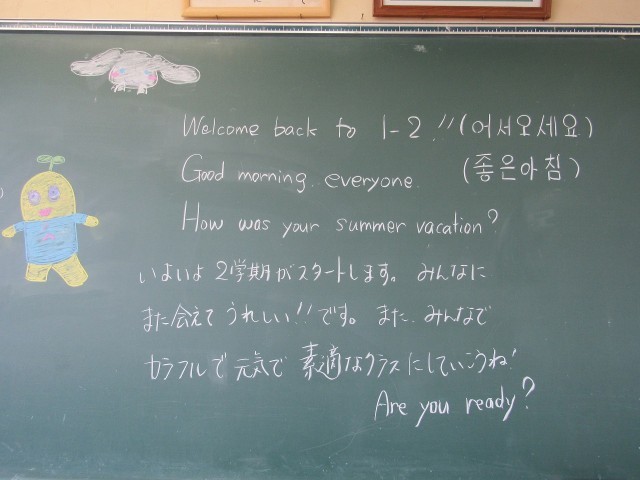 Welcome back to 1-2!! (어서오세요)
Good morning everyone. (좋은아침)
How was your summer vacation?
いよいよ2学期がスタートします。みんなに
また会えてうれしい!!です。また、みんなで
カラフルで元気で素適なクラスにしていこうね!
Are you ready?